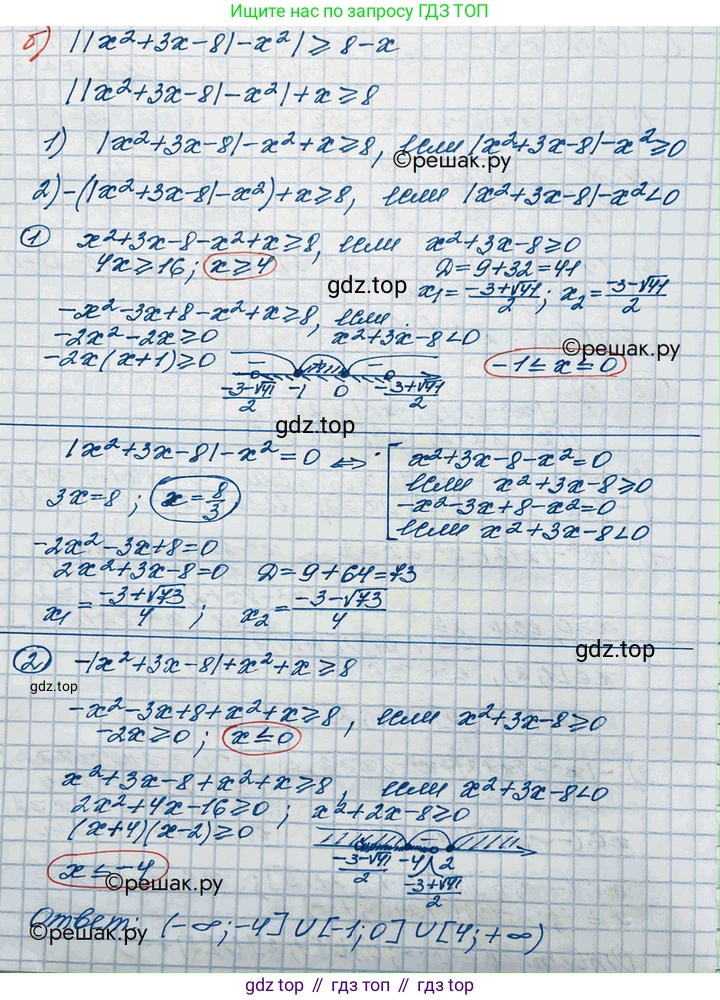 Ищите нас по запросу ГДЗ ТОП
б) ||x²+3x-8|-x²| ≥ 8-x
||x²+3x-8|-x²|+x ≥ 8
1) |x²+3x-8|-x²+x ≥ 8, если |x²+3x-8|-x² ≥ 0
©решак.ру
2) -(|x²+3x-8|-x²)+x ≥ 8, если |x²+3x-8|-x² < 0
① x²+3x-8-x²+x ≥ 8, если x²+3x-8 ≥ 0
4x ≥ 16; x ≥ 4 Д=9+32=41
gdz.top
x₁= (-3+√41)/2; x₂= (-3-√41)/2
-x²-3x+8-x²+x ≥ 8, если
-2x²-2x ≥ 0 x²+3x-8 < 0
©решак.ру
-2x(x+1) ≥ 0 - + - -1 ≤ x ≤ 0
(-3-√41)/2 -1 0 (-3+√41)/2
gdz.top
|x²+3x-8|-x²=0 ⇔ [ x²+3x-8-x²=0
если x²+3x-8 ≥ 0
3x=8; x=8/3 -x²-3x+8-x²=0
если x²+3x-8 < 0
-2x²-3x+8=0
2x²+3x-8=0 Д=9+64=73
x₁= (-3+√73)/4; x₂= (-3-√73)/4
©решак.ру
gdz.top
② -|x²+3x-8|+x²+x ≥ 8
gdz.top
-x²-3x+8+x²+x ≥ 8, если x²+3x-8 ≥ 0
-2x ≥ 0; x ≤ 0
x²+3x-8+x²+x ≥ 8, если x²+3x-8 < 0
2x²+4x-16 ≥ 0; x²+2x-8 ≥ 0
(x+4)(x-2) ≥ 0 -
(-3-√41)/2 -4 2
(-3+√41)/2
x ≤ -4
©решак.ру
Ответ: (-∞;-4]∪[-1;0]∪[4;+∞)
©решак.ру
gdz.top // гдз.топ // гдз.top // gdz.топ